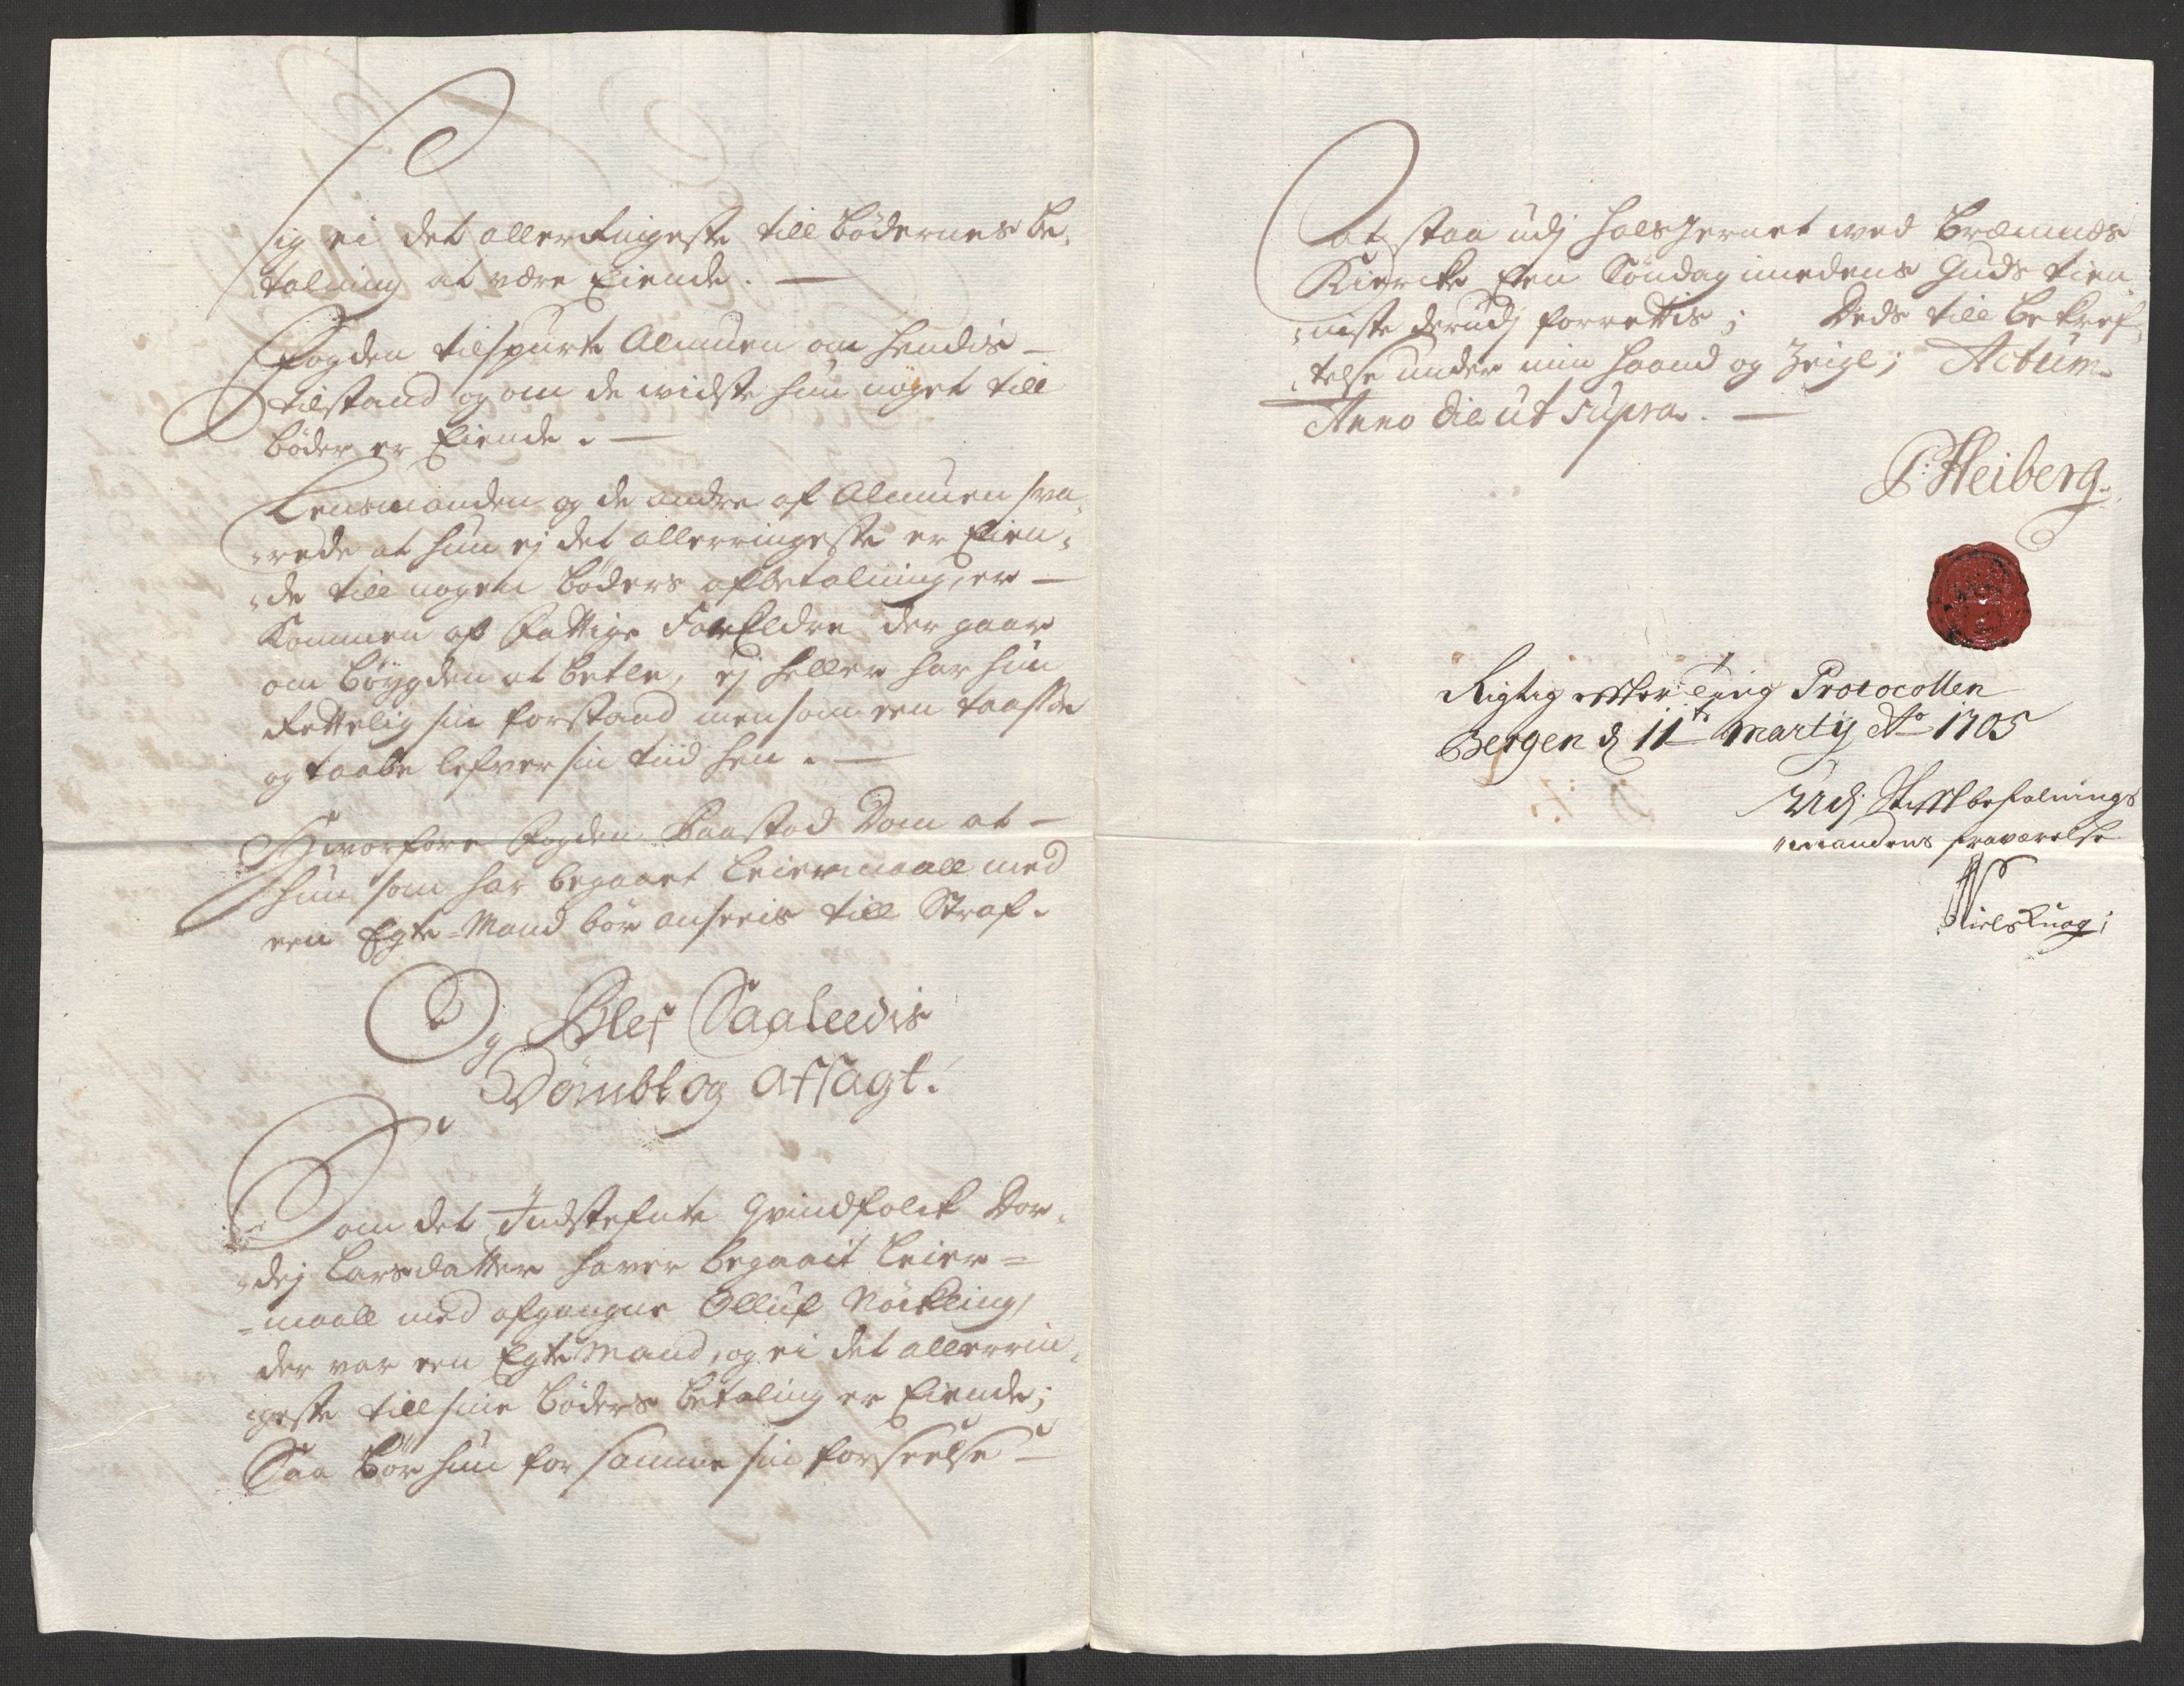 sig ei det allerringeste till bødernes be¸
talning at være Eiende. —
Fogden tilspurte Almuen om hendis —
tilstand og om de widste hun noget till
bøder er Eiende. —
Lensmanden og de andre af Almuen sva¸
¸rede at hun ej det allerringeste er Eien¸
¸de till nogen bøders afbetalning, er —
Kommen af fattige ForEldre der gaar
om bøygden at betle, ej heller har hun
rettelig sin forstand men som een taasse
og taabe lefver sin tiid hen. —
Hvorfore Fogden Paastod Dom at —
hun som har begaaet Leiermaall med
een Egte-Mand bør anseeis till Straf.
Og Blef Saaleedis
Dømbt og Afsagt.
Som det Indstefnte Qvindfolck Dor¸
¸dej Larsdatter haver begaait Leier=
=maall med afgangne Olluf Nøckling,
der var een Egte Mand, og ei det allerrin¸
geste till sine bøders betaling er Eiende;
Saa bør hun for samme sin forseelse —
at staa udj halsJernet wed Bræmnæs
Kiercke Een Søndag imedens Guds tien¸
¸niste derudj forrettis; Deds till bekref¸
¸telse under min haand og Zeigl; Actum
Anno die ut supra. —
P: Heiberg.
Rigtig effter Ting Protocollen
Bergen d 11te Martij Ao 1705
Udj Stiftbefalnings
mandens fraværelse
Niels Knag;